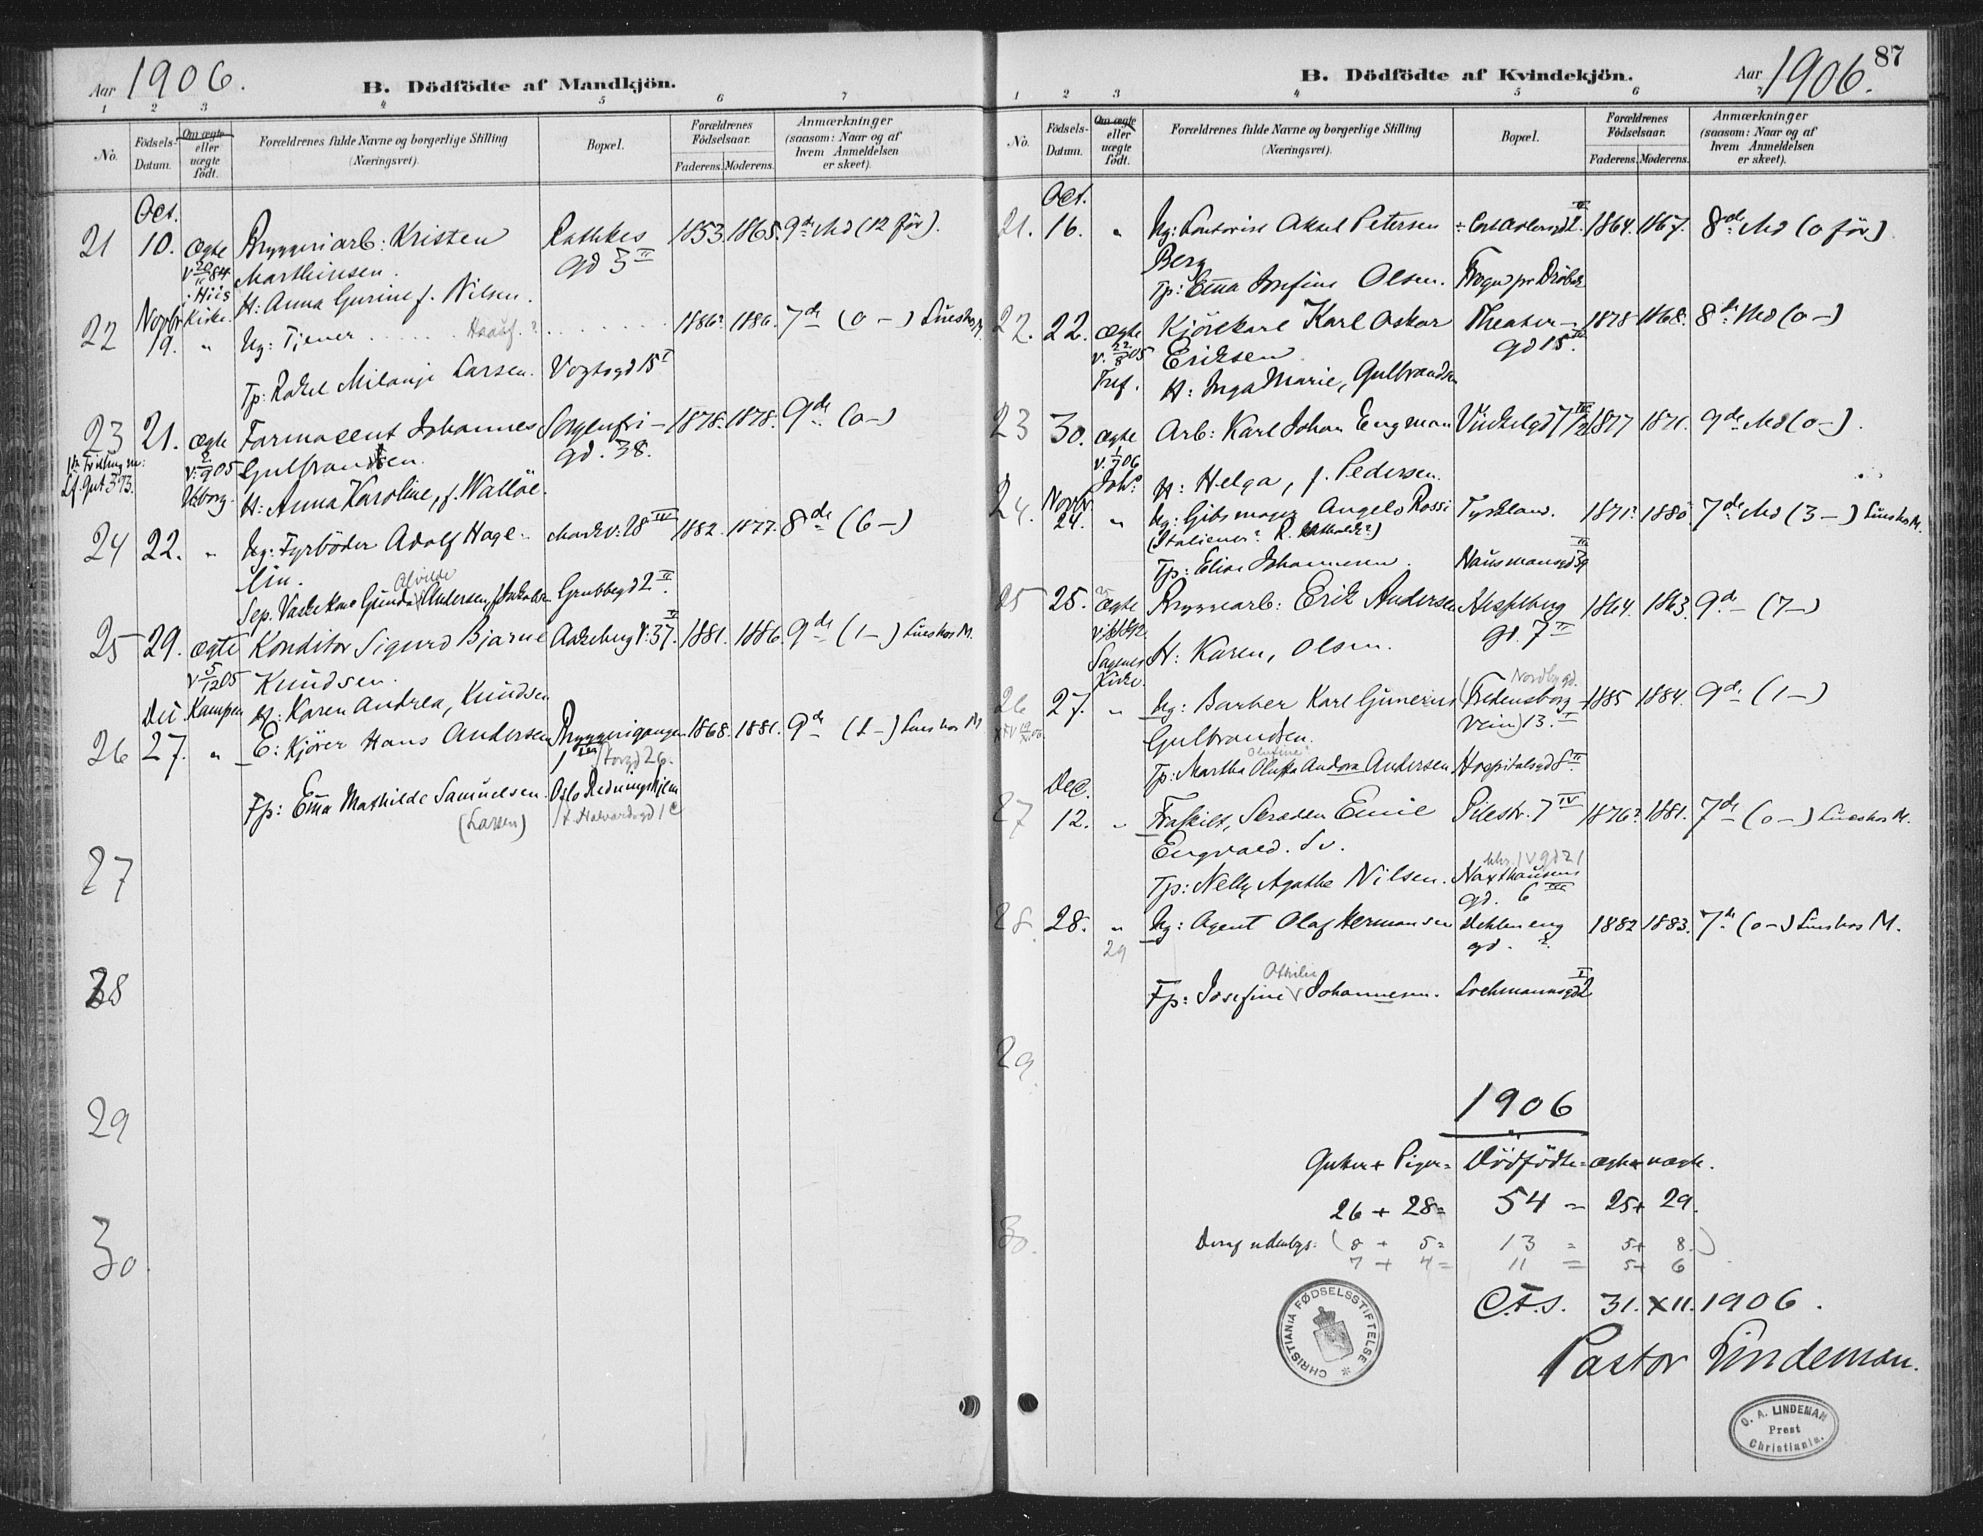 Aar 1906.
B. Dödfödte af Mandkjön.
1 2 3 4 5 6 7
No.
Födsels-Datum.
Om ægte eller uægte födt.
Forældrenes fulde Navne og borgerlige Stilling (Næringsvei).
Bopæl.
Forældrenes Födselsaar.
Faderens. Moderens.
Anmærkninger (saasom: Naar og af hvem Anmeldelsen er skeet).
Oct.
21 10. ægte Bryggeriarb: Kristen Rathkes 1853. 1865. 9de Md (12 för).
v 20/11 84 Marthinsen. gd 5 II
i Hiis H: Anna Gurine f. Nilsen.
Novbr Kirke.
22 19. " Ug: Tjener 1886? 1886. 7de (0 –)
Tp: Rakel Milanje Larsen. Vogtsgd 15 I
23 21. ægte Farmaceut Johannes Sorgenfri- 1878. 1878. 9de (0 –)
v. 2/9 05 Gulbrandsen. gd. 38.
H: Anna Karoline, f. Walløe.
24 22. " Ug: Fyrböder Adolf Hage- Markv: 28 III 1882. 1877. 8de (6 –)
lin.
Alvilde
Sep. Vaskekone Gunda Andersen, f. Grubbegd 2 II
25 29. ægte Konditor Sigurd Bjarne Aakebergv: 37. II 1881. 1886. 9de (1 –)
v 5/12 05 Knudsen.
Dec. Kampen H: Karen Andrea, Knudsen
26 27. " E: Kjörer Hans Andersen Bryggerigangen 1868. 1881. 9de (1 –)
Storgd 26.
Fp: Emma Mathilde Samuelsen. Oslo Redningshjem
(Larsen) St. Halvardsgd 1 C
27
28
29
30
87
B. Dödfödte af Kvindekjön.
Aar 1906.
1 2 3 4 5 6 7
No.
Födsels-Datum.
Om ægte eller uægte födt.
Forældrenes fulde Navne og borgerlige Stilling (Næringsvei).
Bopæl.
Forældrenes Födselsaar.
Faderens. Moderens.
Anmærkninger (saasom: Naar og af hvem Anmeldelsen er skeet).
Oct.
21. 16. " Ug: Kontorist Aksel Petersen 1864. 1867. 8de Md (0 för)
Berg
Tp: Emma Josefine Olsen. Frogn pr Dröbak
22. 22. ægte Kjörekarl Karl Oskar Theater- 1878 1868. 8de Md (0 –)
v. 22/8 05 Eriksen gd 15.
Tref. H: Inga Marie, Gulbrandsen
23 30. ægte Arb: Karl Johan Engman Vinkelgd 1877 1871. 9de Md (0 –).
v. 1/7 06
Joh. H: Helga, f. Pedersen.
Novbr
24. 24. " Ug: Gibsmager Angelo Rossi Tyskland. 1871? 1880 7de Md (3 –)
(Italiener? R. katholik?)
Tp: Elise Johannesen. Hausmansgd 39 II
25 25. ægte Bryggearb: Erik Andersen Hesselberg 1864. 1863. 9de – (7 –)
gd. 7 II
Sagenes H: Karen, Olsen.
Kirke.
Nordbygd.
26 27. " Ug: Barber Karl Gunerius (Fredensborg- 1885 1884. 9de (1 –)
Gulbrandsen. vein) 13. I
Olufine?
Tp: Martha Andora Andersen Hospitalsgd 8 II
Dec.
27 12. " Fraskilt, Skrædder Emil Pilestr. 7 IV 1876? 1881. 7de (0 –)
Engvald. Sv.
Tp: Nelly Agathe Nilsen. Haxthausens
gd. 6 III
28. 28. " Ug: Agent Olaf Hermansen Dehleneng 1882 1883. 7de (0 –)
29 gd. ?
Othilie
Fp: Josefine Johannesen. Lochmannsgd 2 I
29.
30.
1906
Gutter + Piger = Dödfödte = ægte + uægte.
26 + 28 = 54 = 25 + 29.
Deraf udenbys: (8 + 5 = 13 = 5 + 8.)
7 + 4 = 11 = 5 + 6
C.F.S. 31. XII. 1906.
Pastor Lindeman.
CHRISTIANIA FØDSELSSTIFTELSE
O. A. LINDEMAN
Prest
Christiania.